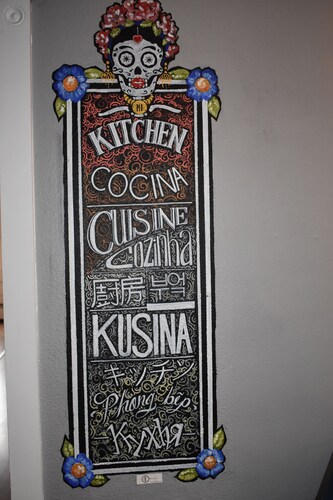 KITCHEN
COCINA
CUISINE
Cozinha
廚房 부엌
KUSINA
キッチン
Phong bếp
Кухня